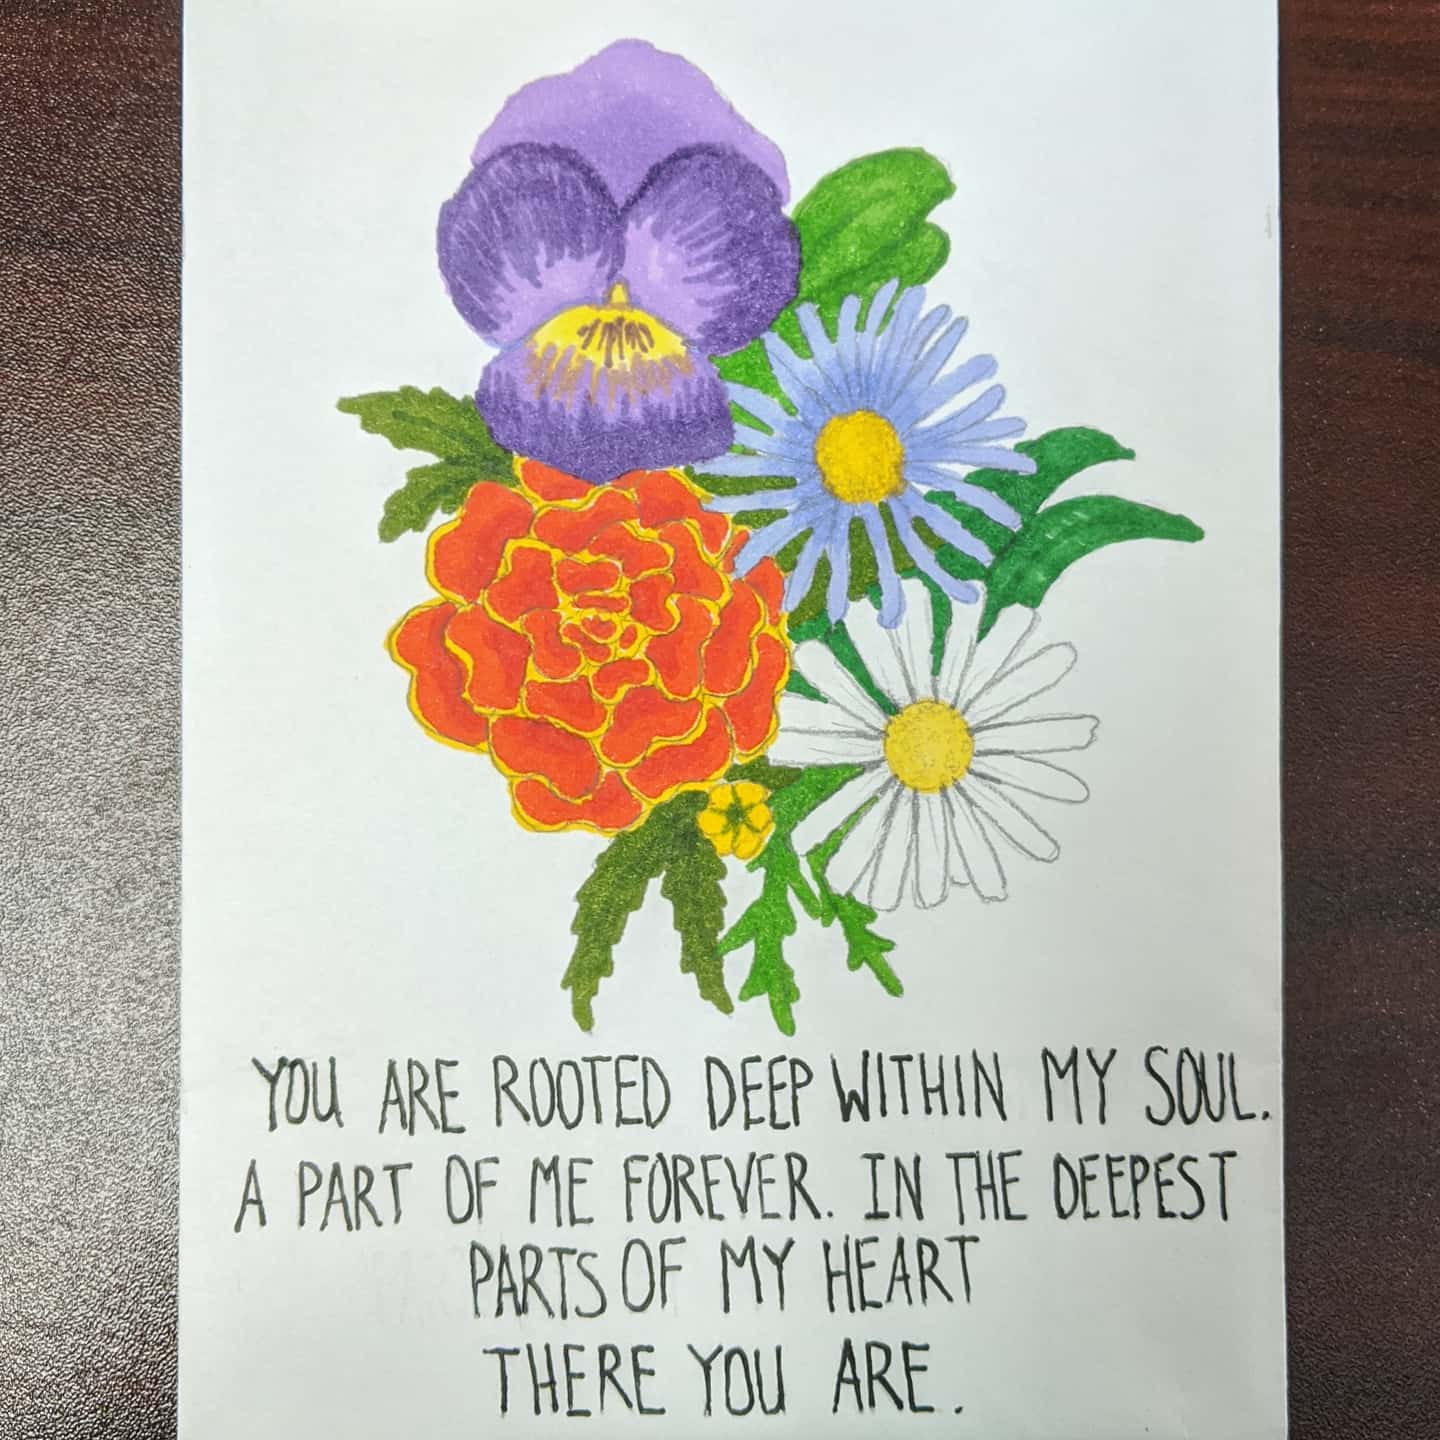 YOU ARE ROOTED DEEP WITHIN MY SOUL.
A PART OF ME FOREVER. IN THE DEEPEST
PARTS OF MY HEART
THERE YOU ARE.